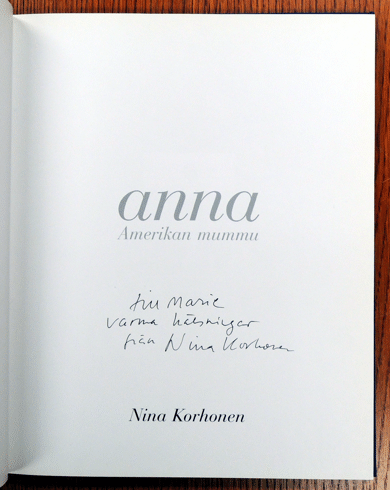 anna
Amerikan mummu
till Marie
varma hälsningar
från Nina Korhonen
Nina Korhonen